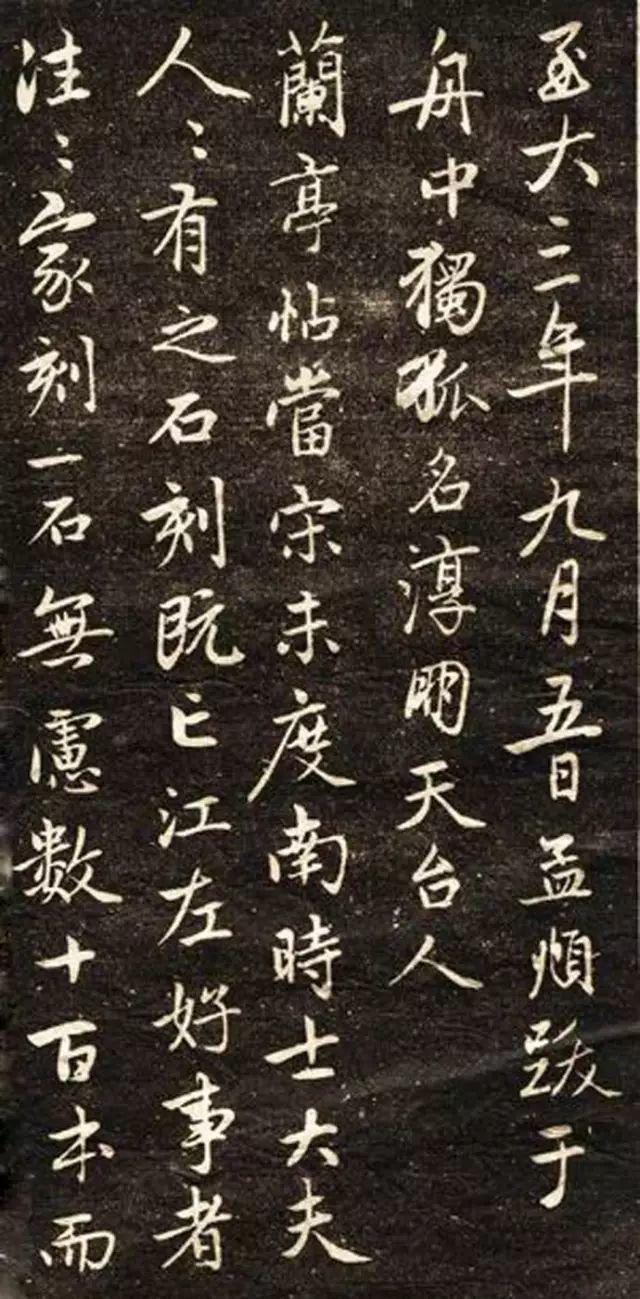 至大三年九月五日孟頫跋于
舟中獨孤名淳朋天台人
蘭亭帖當宋未度南時士大夫
人〻有之石刻既亡江左好事者
往〻家刻一石無慮數十百本而